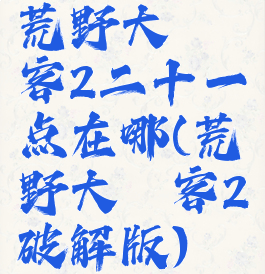 荒野大
客2二十一
点在哪(荒
野大 客2
破解版)